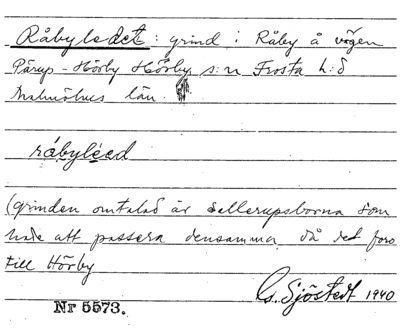 Råbyledet: grind i Råby å vägen
Pärup - Hörby Hörby s:n Frosta h:d
Malmöhus län.
råbyléed
(grinden omtalad är Sellerupsborna som
hade att passera densamma då det foro
till Hörby
G. Sjöstedt 1940
Nr 5573.